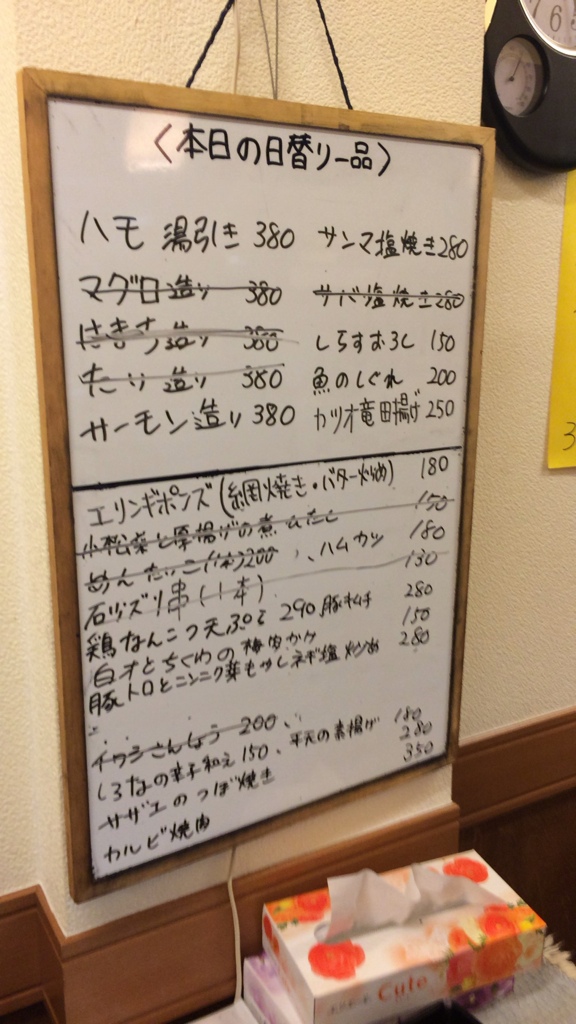 〈本日の日替り一品〉
ハモ 湯引き 380 サンマ塩焼き280
マグロ造り 380 サバ塩焼き280
はきち造り 380 しらすおろし 150
たり 造り 380 魚のしぐれ 200
サーモン造り 380 カツオ竜田揚げ 250
エリンギポンズ(網焼き・バター炒め) 180
小松菜と厚揚げの煮 150
めんたいこ(1本)200、ハムカツ 180
石ヅズリ串(1本) 130
鶏なんこつ天ぷら 290、豚キムチ 280
白オとちくわの梅肉かけ 150
豚トロとニンニク芽もやしネギ塩炒め 280
イワシさんしょう 200、
しろなの辛子和え 150、平天の素揚げ 180
サザエのつぼ焼き 280
カルビ焼肉 350
Cute